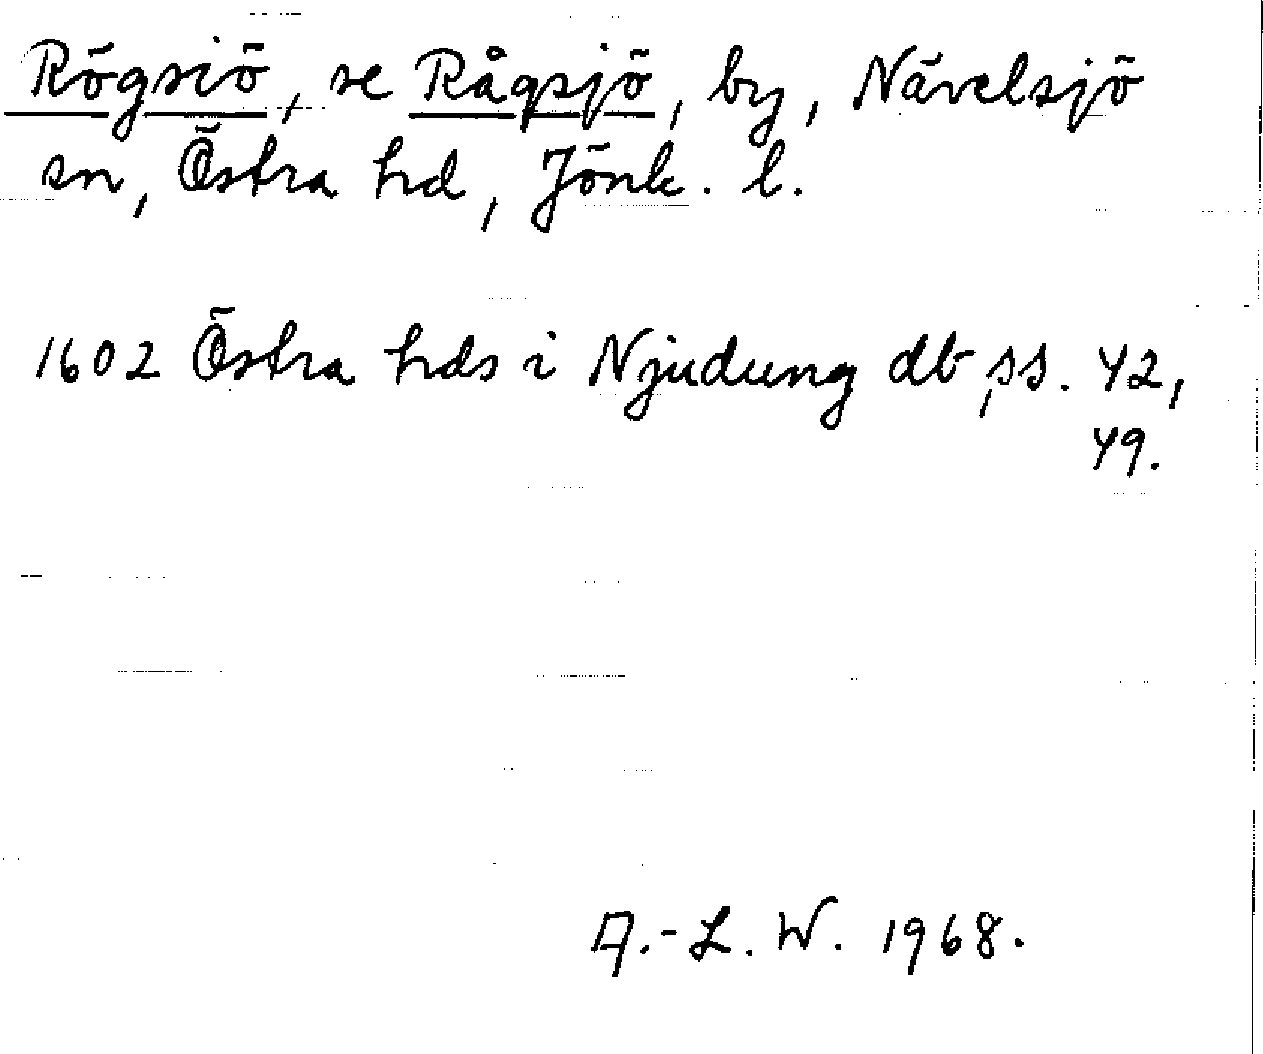 Rögsiö, se Rågsjö, by, Nävelsjö
sn, Östra hd, Jönk. l.
1602 Östra hds i Njudung db, ss. 42,
49.
A.-L. W. 1968.